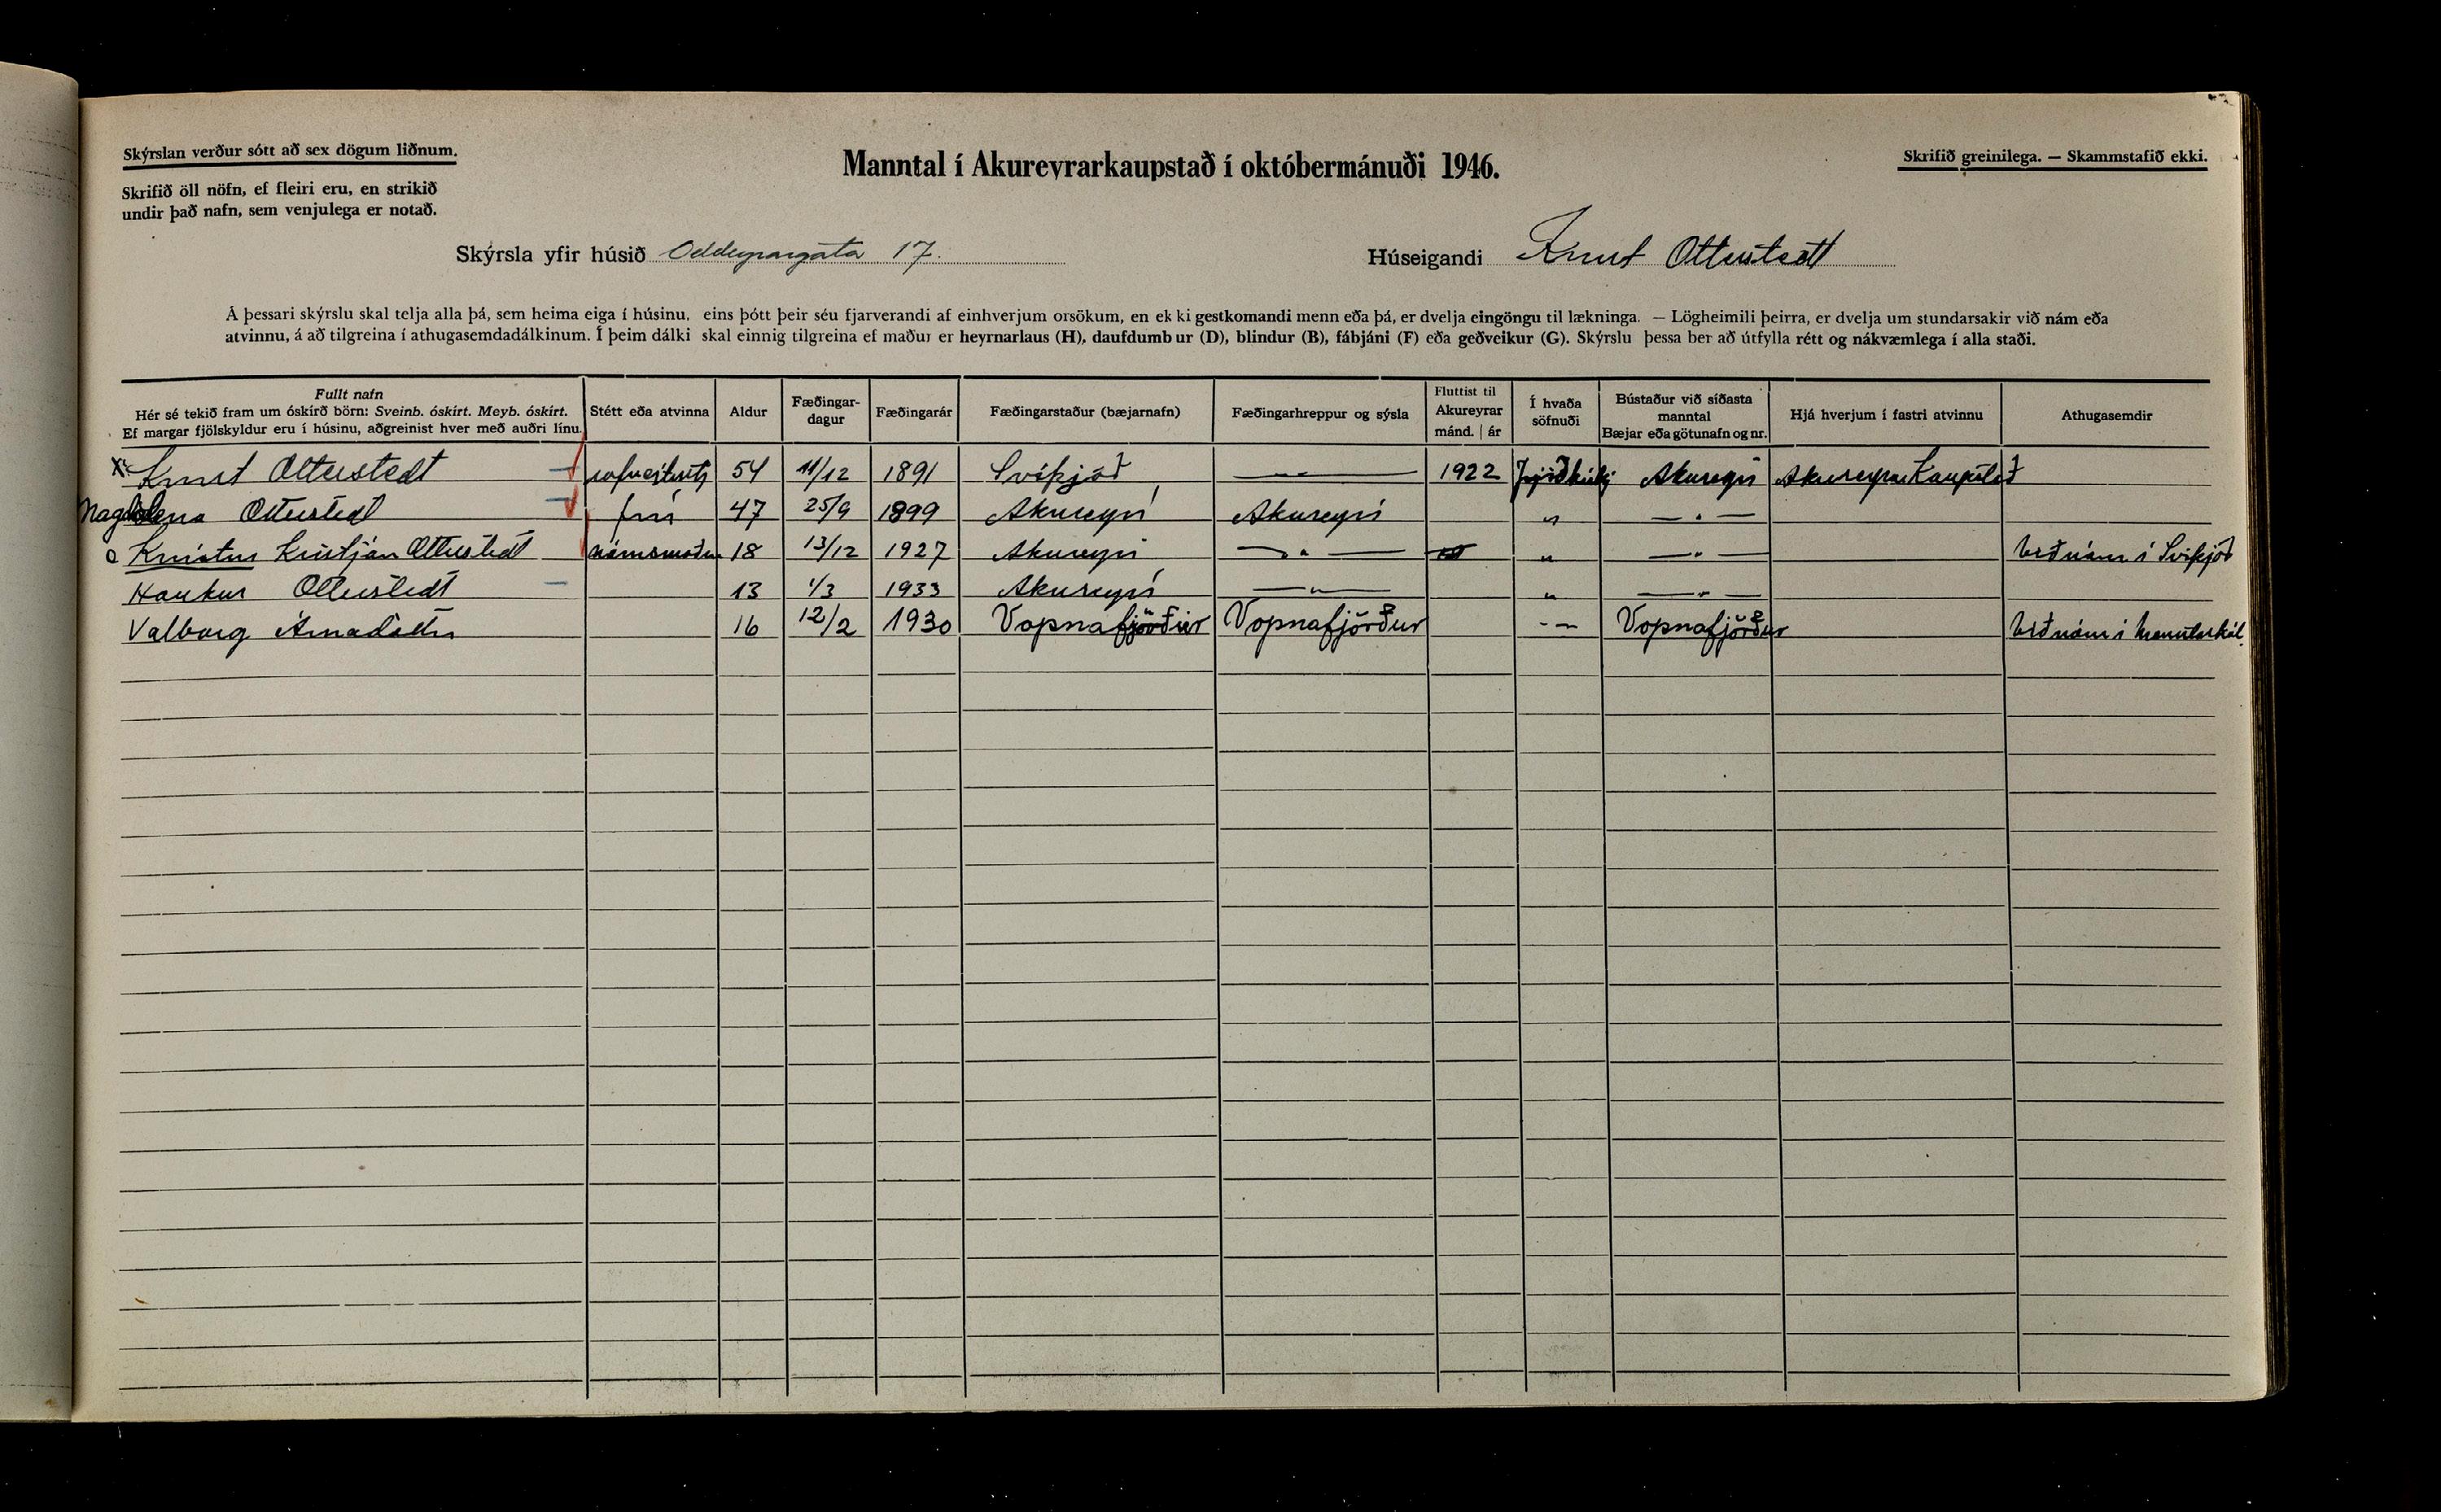 Skýrslan verður sótt að sex dögum liðnum.
Skrifið öll nöfn, ef fleiri eru, en strikið
undir það nafn, sem venjulega er notað.
Manntal í Akureyrarkaupstað í októbermánuði 1946.
Skrifið greinilega. — Skammstafið ekki.
Skýrsla yfir húsið Oddeyrargata 17.
Húseigandi Knut Otterstedt
Á þessari skýrslu skal telja alla þá, sem heima eiga í húsinu, eins þótt þeir séu fjarverandi af einhverjum orsökum, en ekki gestkomandi menn eða þá, er dvelja eingöngu til lækninga. — Lögheimili þeirra, er dvelja um stundarsakir við nám eða
atvinnu, á að tilgreina í athugasemdadálkinum. Í þeim dálki skal einnig tilgreina ef maður er heyrnarlaus (H), daufdumbur (D), blindur (B), fábjáni (F) eða geðveikur (G). Skýrslu þessa ber að útfylla rétt og nákvæmlega í alla staði.
Fullt nafn
Hér sé tekið fram um óskírð börn: Sveinb. óskírt. Meyb. óskírt.
Ef margar fjölskyldur eru í húsinu, aðgreinist hver með auðri línu.
Stétt eða atvinna
Aldur
Fæðingar-
dagur
Fæðingarár
Fæðingarstaður (bæjarnafn)
Fæðingarhreppur og sýsla
Fluttist til
Akureyrar
mánd. | ár
Í hvaða
söfnuði
Bústaður við síðasta
manntal
Bæjar eða götunafn og nr.
Hjá hverjum í fastri atvinnu
Athugasemdir
Knut Otterstedt 54 11/12 1891 Svíþjóð 1922 Akureyri Akureyrar Kaupstað
Magdalena Otterstedt frú 47 25/9 1899 Akureyri Akureyri " — " —
Knútur Kristján Otterstedt námsmaður 18 13/12 1927 Akureyri — " — " — " — Við nám í Svíþjóð
Haukur Otterstedt 13 1/3 1933 Akureyri — " — " — " —
Valborg Árnadóttir 16 12/2 1930 Vopnafjörður Vopnafjörður - " - Vopnafjörður Við nám í